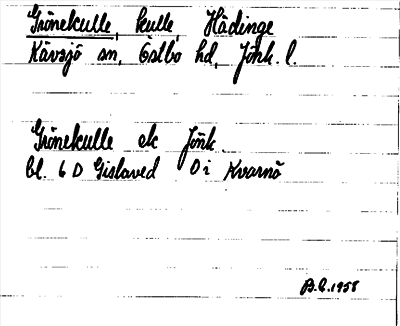 Grönekulle, kulle, Hådinge
Kävsjö sn, Östbo hd, Jönk. l.
Grönekulle ek Jönk.
bl. 6 D Gislaved 0 i Kvarnö
B.E. 1958